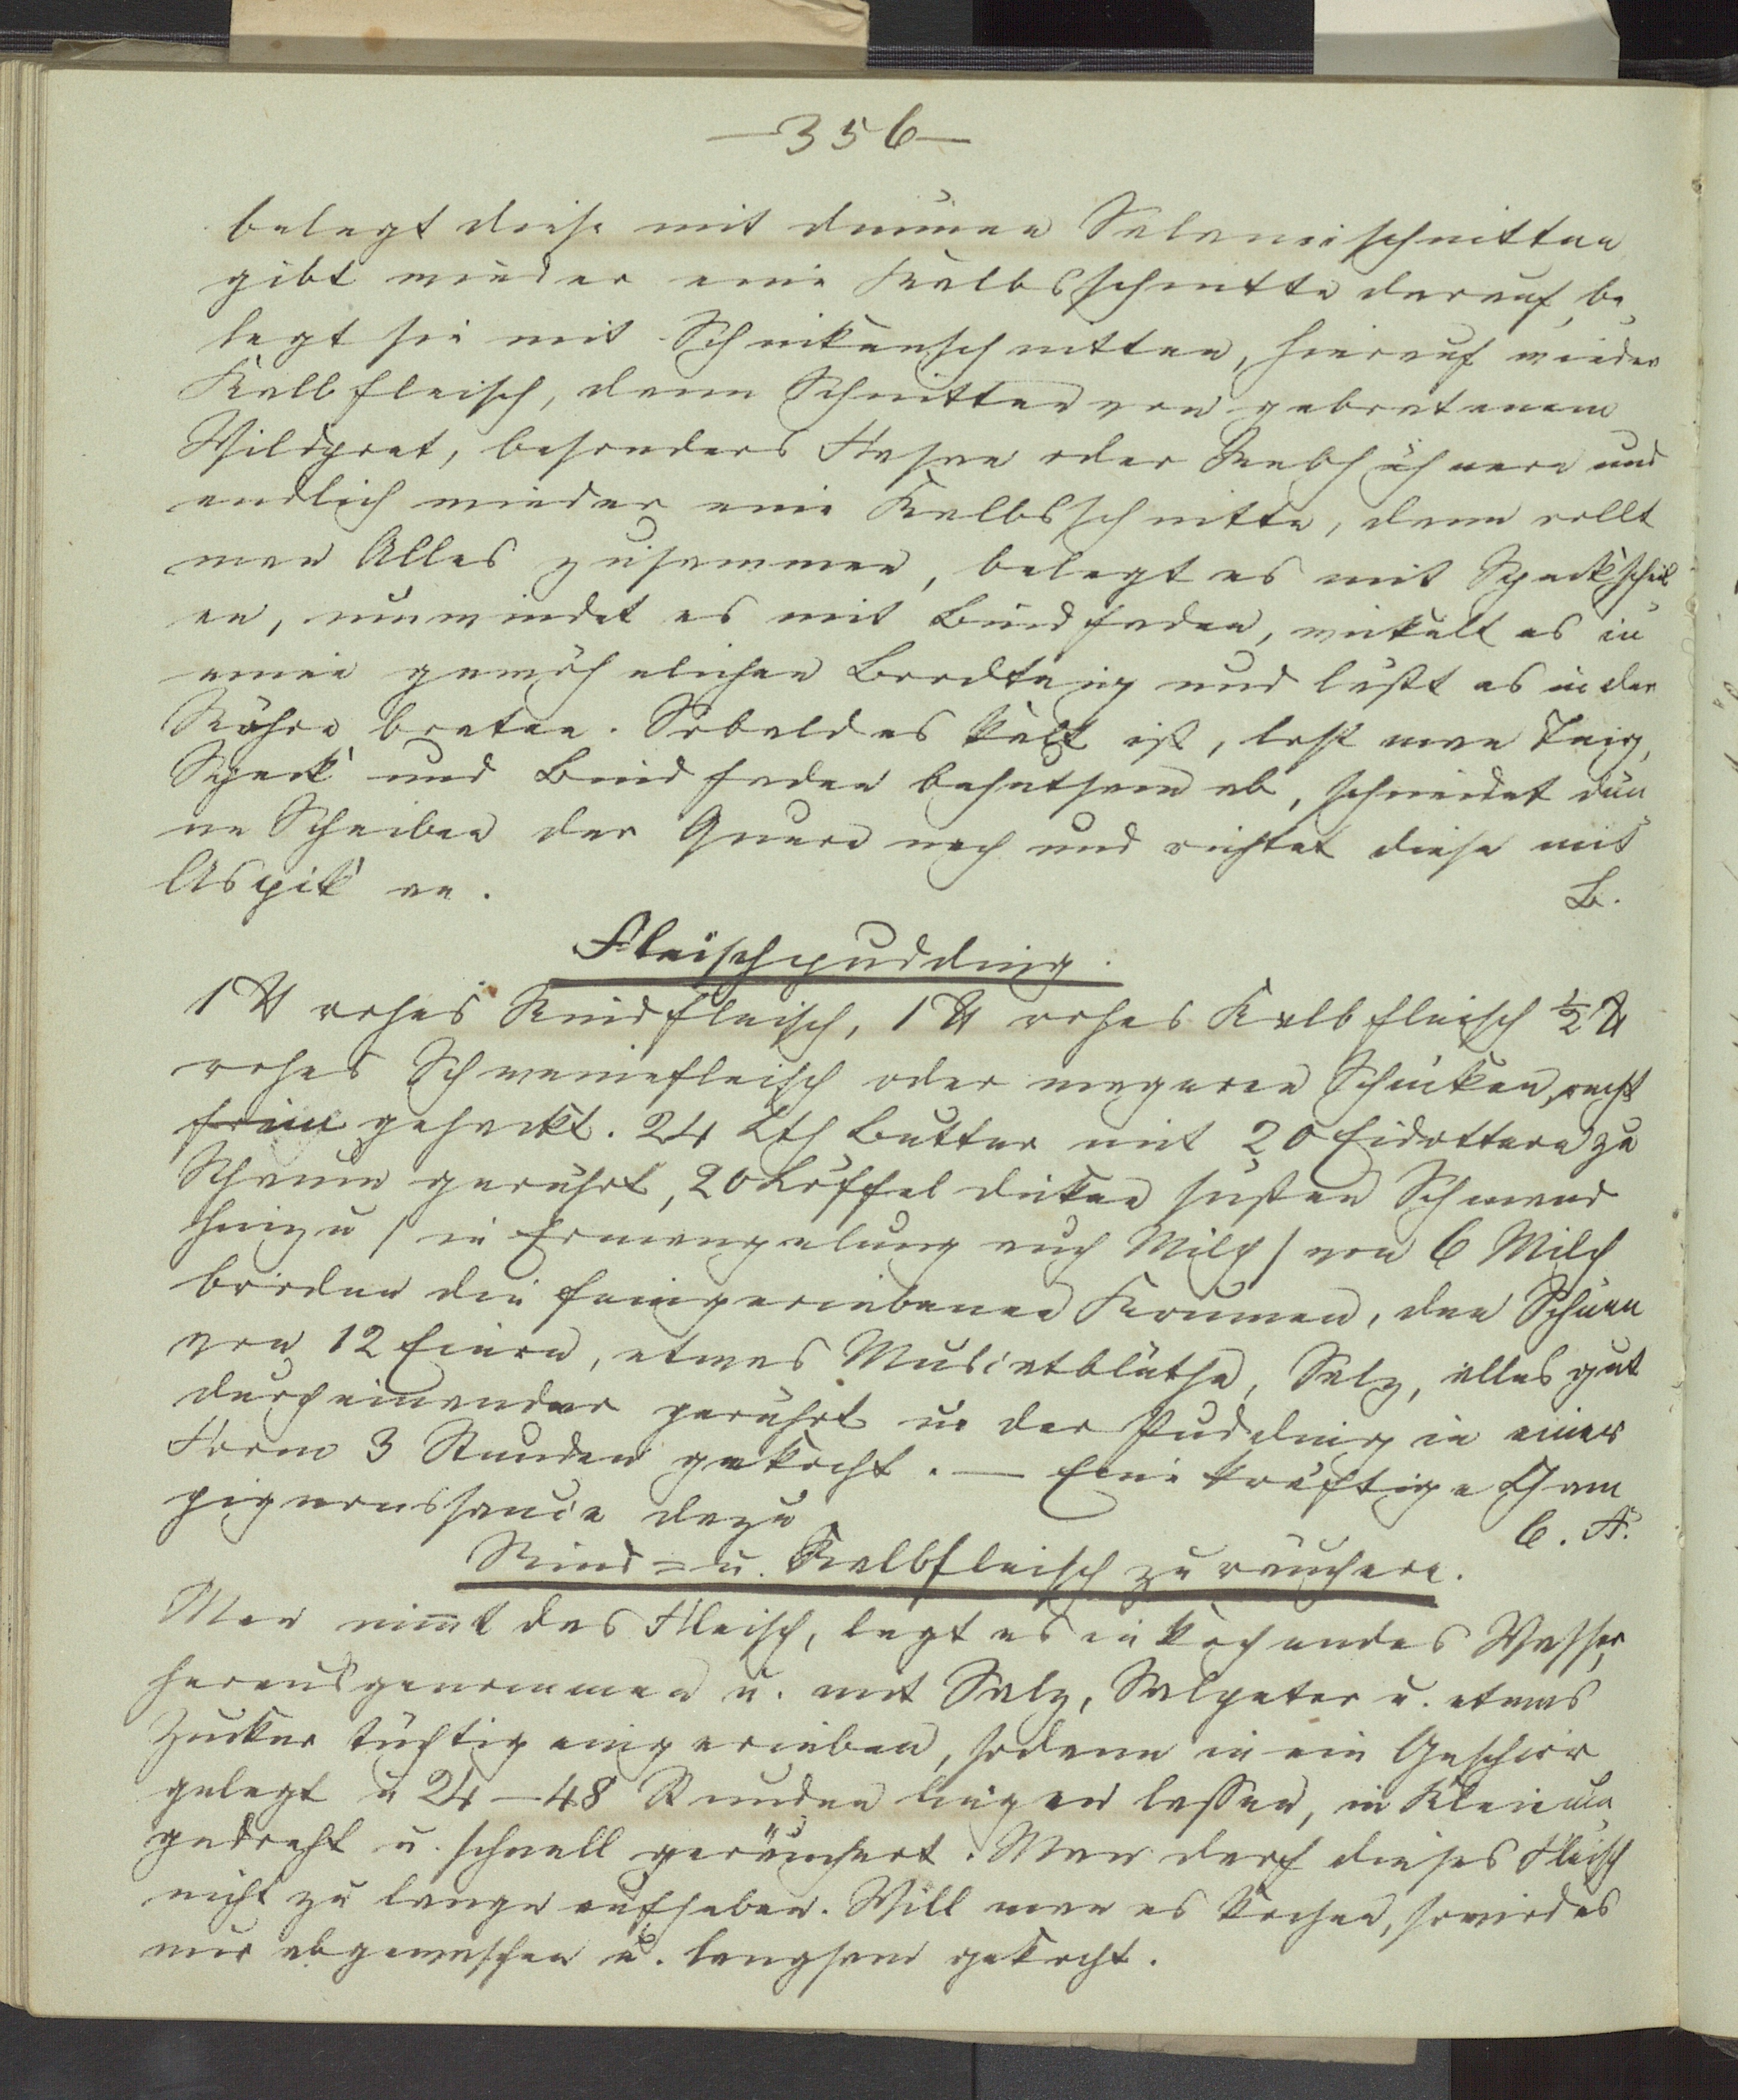 —356—
belegt diese mit dünnen Salamischnitten
gibt wieder eine Kalbsschnitte darauf, be„
legt sie mit Schinkenschnitten, hierauf wieder
Kalbfleisch, dann Schnitten von gebratenem
Wildpret, besonders Hasen oder Rebhühnern und
endlich wieder eine Kalbsschnitte, dann rollt
man Alles zusammen, belegt es mit Speckscheib
en, umwindet es mit Bindfaden, wikelt es in
einen gewöhnlichen Brodteig und läßt es in der
Röhre braten. Sobald es kalt ist, löst man Teig,
Speck und Bindfaden behutsam ab, schneidet dün
ne Scheiben der Quere nach und richtet diese mit
Aspik an. B.
Fleischpudding.
1 ℔ rohes Rindfleisch, 1 ℔ rohes Kalbfleisch ½ ℔
rohes Schweinefleisch oder mageren Schinken, recht
fein gehackt. 24 Lth Butter mit 20 Eidottern zu
Schaum gerührt, 20 Löffel dicken süßen Schmand
hinzu / in Ermangelung auch Milch / von 6 Milch
broden die feingeriebenen Krumen, den Schnee
von 12 Eiern, etwas Muscatblüthe, Salz, alles gut
durcheinander gerührt u der Pudding in einer
Form 3 Stunden gekocht. — Eine kräftige Cham
pignonssauce dazu C. F.
Rind= u. Kalbfleisch zu räuchern.
Man nim̅t das Fleisch, legt es in kochendes Wasser,
herausgenommen u. mit Salz, Salpeter u. etwas
Zucker tüchtig eingerieben, sodann in ein Geschirr
gelegt u 24—48 Stunden liegen lassen, in Kleien um„
gedreht u. schnell geräuchert. Man darf dieses Fleisch
nicht zu lange aufheben. Will man es kochen, so wird es
nur abgewaschen u. langsam gekocht.